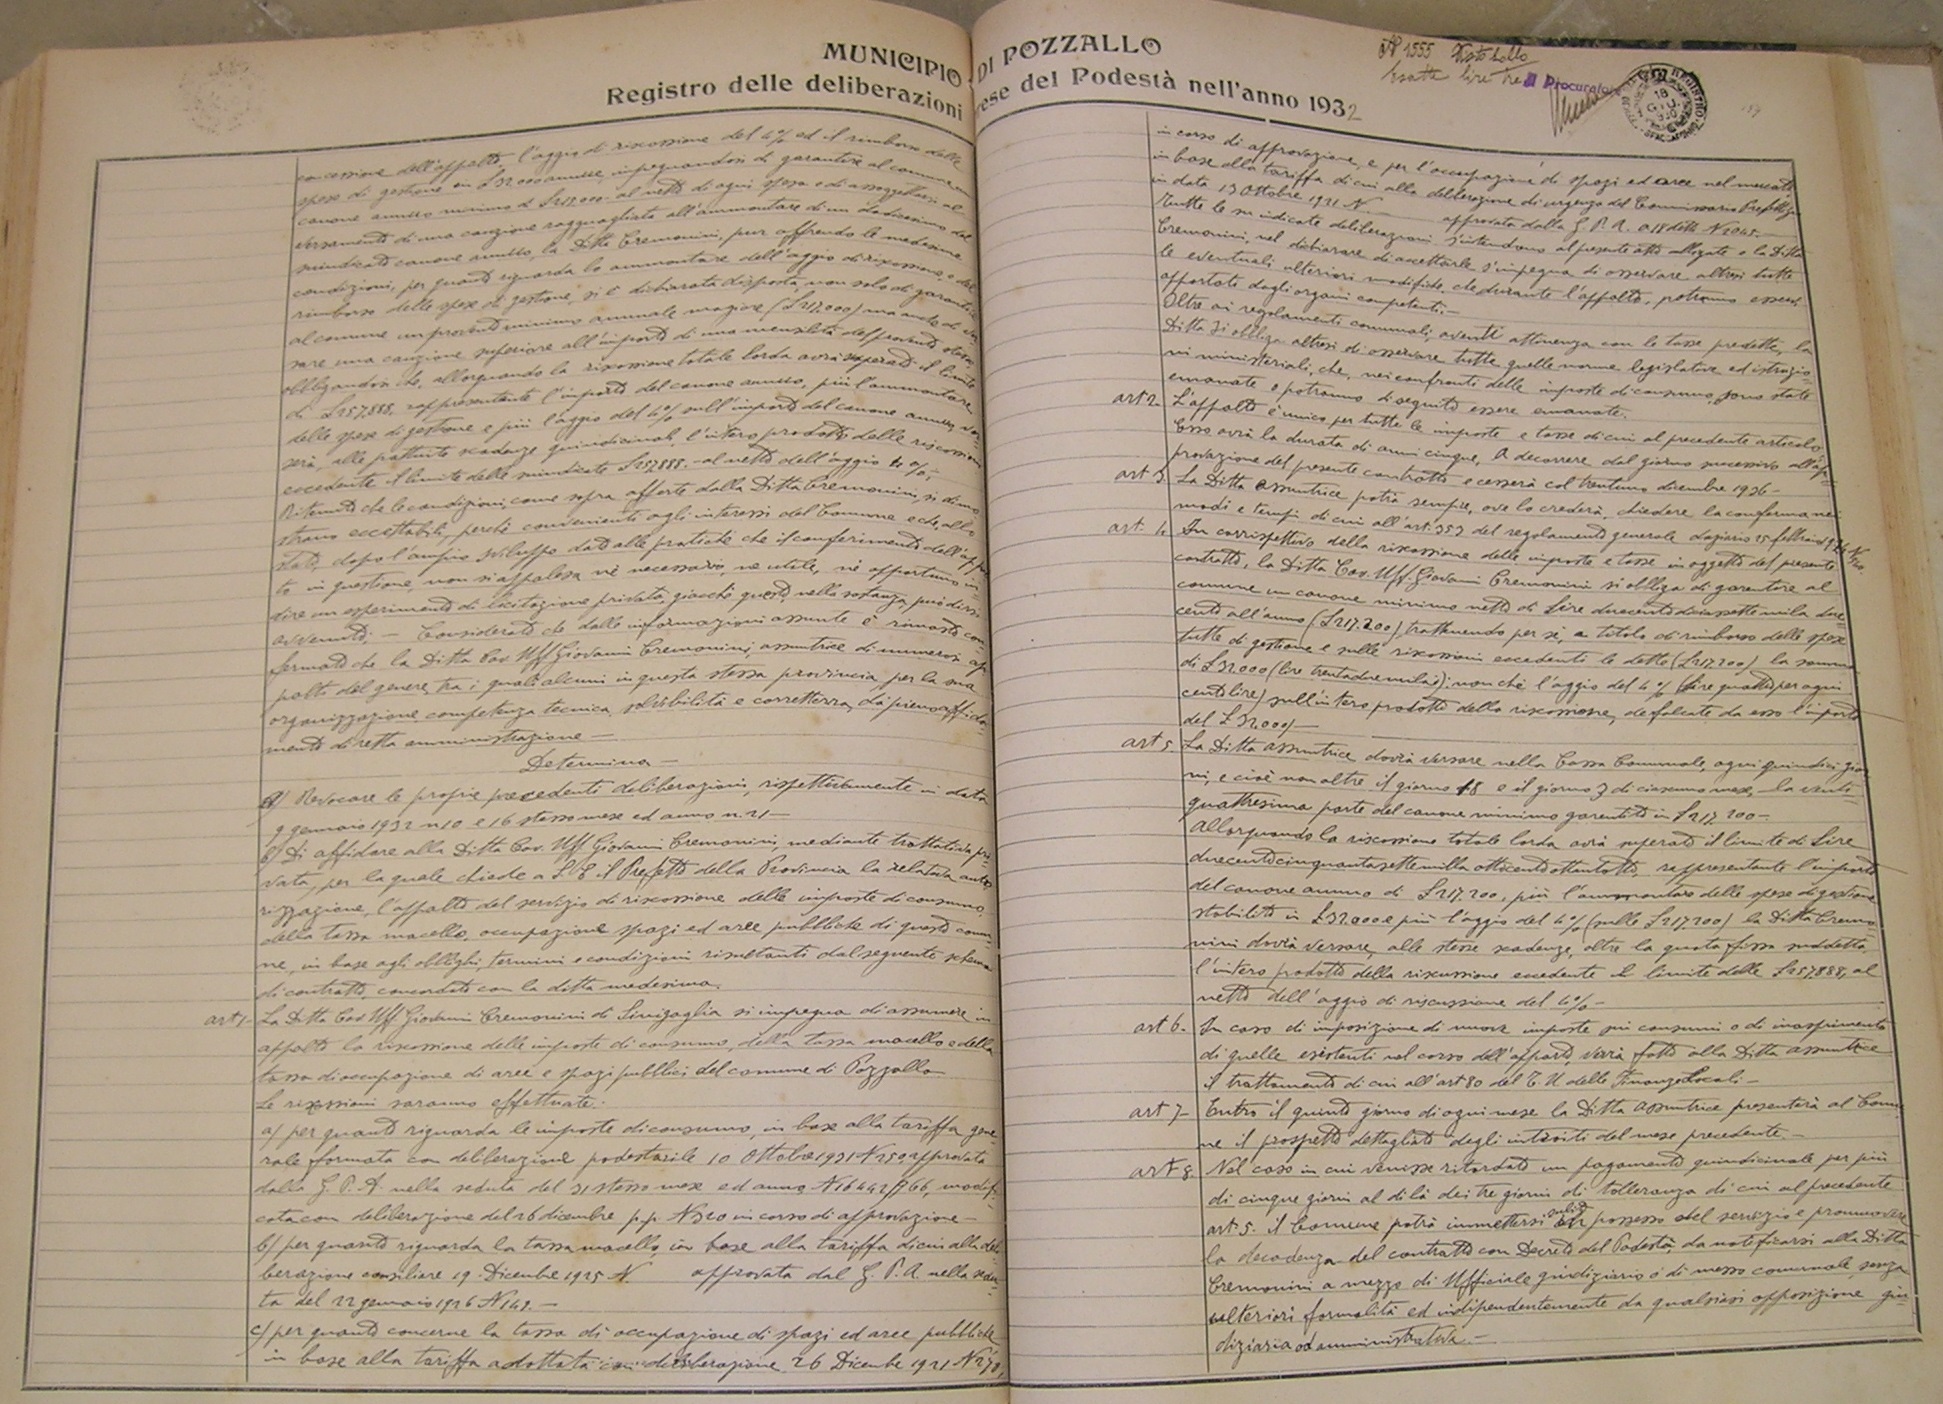 MUNICIPIO DI POZZALLO
Registro delle deliberazioni prese del Podestà nell'anno 1932
concessione dell'appalto, l'aggio di riscossione del 4% ed il rimborso delle
spese di gestione in £ 32000 annue, impegnandosi di garantire al comune un
canone annuo minimo di £ 217.000 al netto di ogni spesa e di assoggettarsi al
versamento di una cauzione ragguagliata all'ammontare di un dodicesimo del
suindicato canone annuo, la Ditta Cremonini, pur offrendo le medesime
condizioni, per quanto riguarda lo ammontare dell'aggio di riscossione, e del
rimborso delle spese di gestione, si è dichiarata disposta, non solo di garantire
al comune un provento minimo annuale maggiore (£ 217.000) ma anche di ver
sare una cauzione superiore all'importo di una mensilità del provento stesso,
obbligandosi che, allorquando la riscossione totale lorda avrà superato il limite
di £ 257.888, rappresentante l'importo del canone annuo, più l'ammontare
delle spese di gestione e più l'aggio del 4% sull'importo del canone annuo, ver
serà, alle pattuite scadenze quindicinali, l'intero prodotto delle riscossioni
eccedente il limite delle suindicate £ 257.888. al netto dell'aggio 4%;
Ritenuto che le condizioni, come sopra offerte dalla Ditta Cremonini, si dimo
strano accettabili, perchè convenienti agli interessi del Comune e che, allo
stato, dopo l'ampio sviluppo dato alle pratiche che il conferimento dell'appal
to in questione, non si appalesa nè necessario, ne utile, nè opportuno in
dire un esperimento di licitazione privata, giacchè questo, nella sostanza, può dirsi
avvenuto; - Considerato che dalle informazioni assunte è rimasto con
fermato che la Ditta Cav. Uff. Giovanni Cremonini, assuntrice di numerosi ap
palti del genere, tra i quali alcuni in questa stessa provincia, per la sua
organizzazione competenza tecnica, solvibilità e correttezza, dà pieno affida
mento di retta amministrazione -
Determina -
a/ Revocare le proprie precedenti deliberazioni, rispettivamente in data
9 gennaio 1932 n. 10 e 16 stesso mese ed anno n. 21 -
b/ Di affidare alla Ditta Cav. Uff. Giovanni Cremonini, mediante trattativa pri
vata, per la quale chiede a S. E. il Prefetto della Provincia la relativa auto
rizzazione, l'appalto del servizio di riscossione delle imposte di consumo,
della tassa macello, occupazione spazi ed aree pubbliche di questo comu
ne, in base agli obblighi, termini e condizioni risultanti dal seguente schema
di contratto, concordato con la ditta medesima.
art 1- La Ditta Cav. Uff. Giovanni Cremonini di Sinigaglia si impegna di assumere in
appalto la riscossione delle imposte di consumo, della tassa macello e della
tassa di occupazione di aree e spazi pubblici del comune di Pozzallo
Le riscossioni saranno effettuate:
a/ per quanto riguarda le imposte di consumo, in base alla tariffa gene
rale formata con deliberazione podestarile 10 Ottobre 1931 N 250 approvata
dalla G. P. A. nella seduta del 31 stesso mese ed anno N 16442/766, modifi
cata con deliberazione del 26 dicembre p.p. N 320 in corso di approvazione -
b/ per quanto riguarda la tassa macello, in base alla tariffa di cui alla deli
berazione consiliare 19 Dicembre 1925 N approvata dal G. P. A. nella sedu
ta del 22 gennaio 1926 N 142. -
c/ per quanto concerne la tassa di occupazione di spazi ed aree pubbliche
in base alla tariffa adottata con deliberazione 26 Dicembre 1931
N 1555 Visto bollo
Esatte lire tre
Il Procuratore
in corso di approvazione, e per l'occupazione di spazi ed aree nel mercato
in base alla tariffa di cui alla deliberazione di urgenza del Commissario Prefettizio
in data 13 Ottobre 1921 N approvata dalla G. P. A. N 2045. -
Tutte le su indicate deliberazioni s'intendono al presente atto allegate e la Ditta
Cremonini, nel dichiarare di accettarle, s'impegna di osservare altresì tutte
le eventuali ulteriori modifiche, che durante l'appalto, potranno essere
apportate dagli organi competenti. -
Oltre ai regolamenti comunali, aventi attinenza con le tasse predette, la
Ditta si obbliga altresì di osservare tutte quelle norme legislative ed istruzio
ni ministeriali, che, nei confronti delle imposte di consumo, sono state
emanate o potranno di seguito essere emanate.
art 2. L'appalto è unico per tutte le imposte e tasse di cui al precedente articolo
Esso avrà la durata di anni cinque, a decorrere dal giorno successivo all'ap
provazione del presente contratto e cesserà col trentuno dicembre 1936 -
art 3. La Ditta assuntrice potrà sempre, ove lo crederà, chiedere la conferma nei
modi e tempi di cui all'art. 353 del regolamento generale daziario 25 febbraio 1924 N
art. 4. In corrispettivo della riscossione delle imposte e tasse in oggetto del presente
contratto, la Ditta Cav. Uff. Giovanni Cremonini si obbliga di garantire al
comune un canone minimo netto di Lire duecentodiciassettemila due
cento all'anno (£ 217.200), trattenendo per sè, a titolo di rimborso delle spese
tutte di gestione e sulle riscossioni eccedenti le dette (£ 217.200) la somma
di £ 32000 (lire trentaduemila); nonchè l'aggio del 4% (lire quattro per ogni
cento lire) sull'intero prodotto della riscossione, defalcate da esso l'importo
del £ 32000) -
art 5. La Ditta assuntrice dovrà versare nella Cassa Comunale, ogni quindici gior
ni, e cioè non oltre il giorno 18 e il giorno 3 di ciascuno mese, la venti
quattresima parte del canone minimo garentito in £ 217.200 -
Allorquando la riscossione totale lorda avrà superato il limite di Lire
duecentocinquantasettemilla ottocentottantotto, rappresentante l'importo
del canone annuo di £ 217.200, più l'ammontare delle spese di gestione
stabilito in £ 32000 e più l'aggio del 4% (sulle £ 217.200) la Ditta Cremo
nini dovrà versare, alle stesse scadenze, oltre la quota fissa suddetta,
l'intero prodotto della riscussione eccedente il limite delle £ 257.888, al
netto dell'aggio di riscussione del 4% -
art 6. In caso di imposizione di nuove imposte sui consumi o di inasprimento
di quelle esistenti nel corso dell'appalto, verrà fatto alla Ditta assuntrice
il trattamento di cui all'art 80 del T. U. delle Finanze Locali -
art 7- Entro il quinto giorno di ogni mese la Ditta assuntrice presenterà al Comu
ne il prospetto dettagliato degli introiti del mese precedente. -
art 8. Nel caso in cui venisse ritardato un pagamento quindicinale per più
di cinque giorni al di là dei tre giorni di tolleranza di cui al precedente
art. 5. il Comune potrà immettersi subito in possesso del servizio e promuovere
la decadenza del contratto con Decreto del Podestà, da notificarsi alla Ditta
Cremonini a mezzo di Ufficiale giudiziario o di messo comunale, senza
ulteriori formalità ed indipendentemente da qualsiasi opposizione giu
diziaria od amministrativa. -